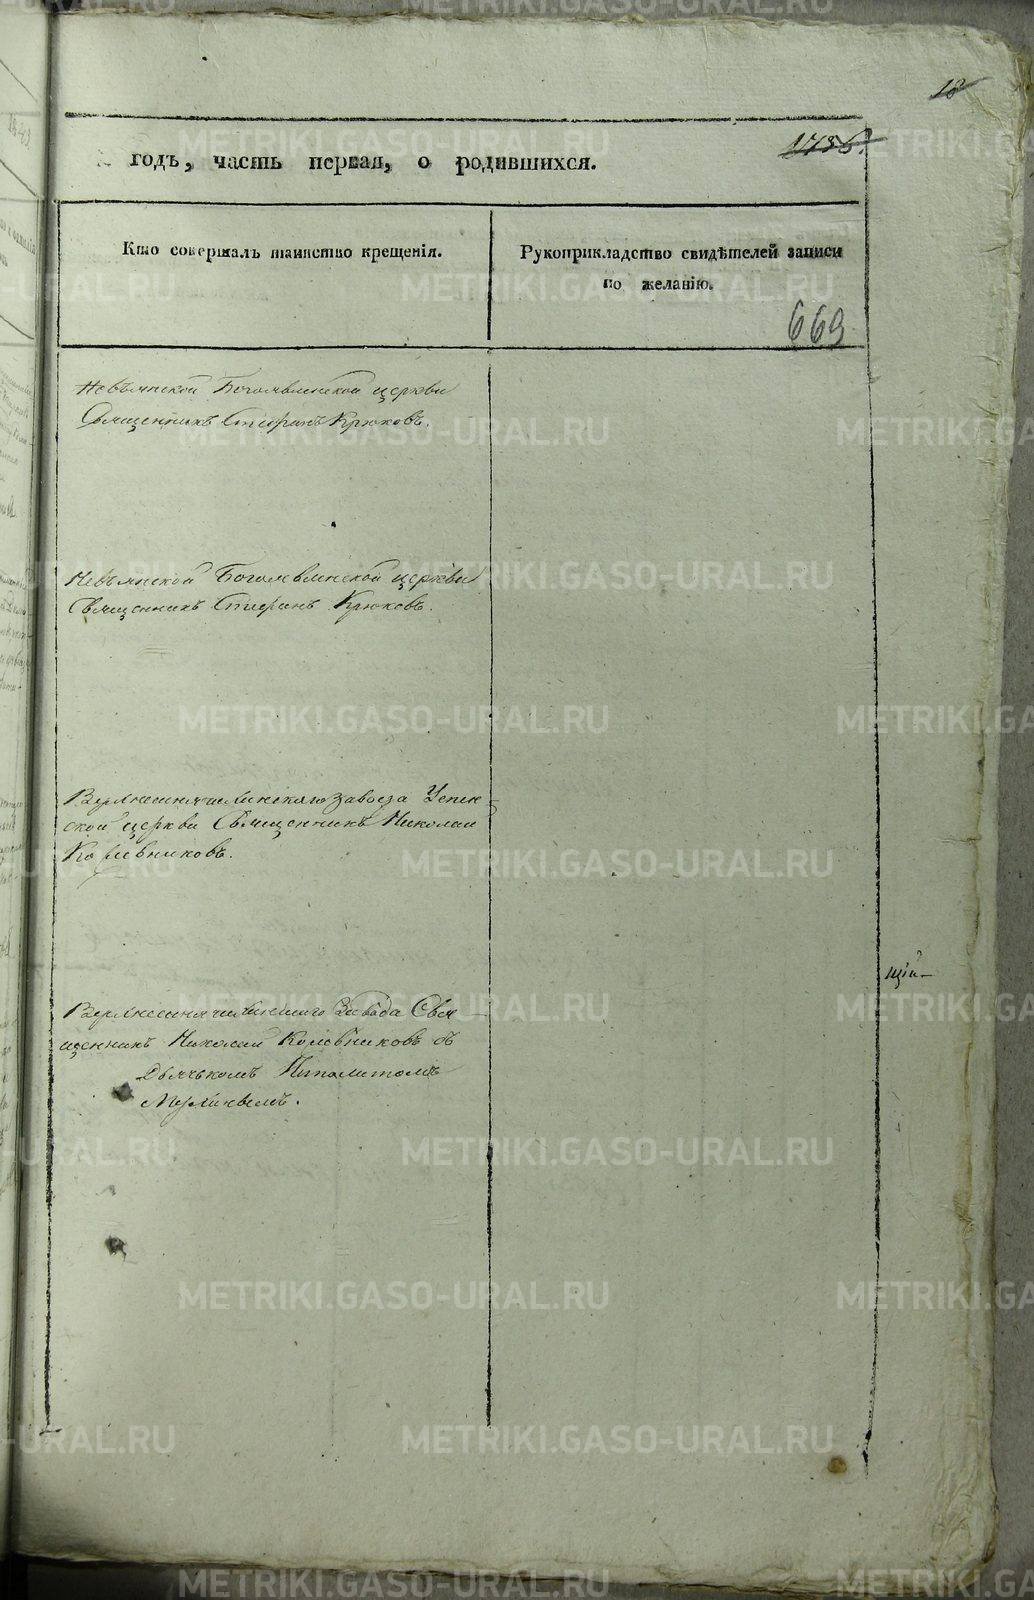 18
1786.
годъ, часть первая, о родившихся.
Кто совершалъ таинство крещенія.
Рукоприкладство свидѣтелей записи
по желанію.
669
Невьянской Богоявленской церкви
Священникъ Стефанъ Крюковъ.
Невьянской Богоявленской церкви
Священникъ Стефанъ Крюковъ.
Верхнесинячихинскаго завода Успен-
ской церкви Священникъ Николай
Коровниковъ.
щій
Верхнесинячихинскаго Завода Свя
щенникъ Николай Коровниковъ съ
Дьячькомъ Ипполитомъ
METRIKI.GASO-URAL.RU